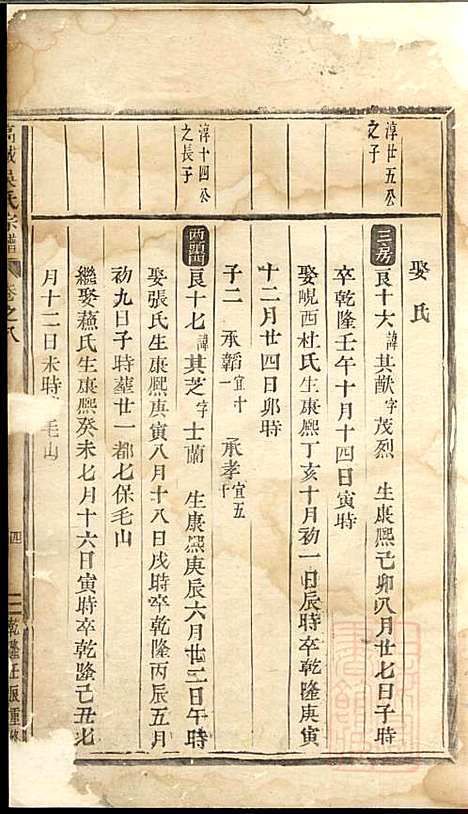 淳廿五公
之子
淳十四公
之長子
娶氏
三房
良十大諱其猷字茂烈 生康熙己卯八月廿七日子時
卒乾隆壬午十月十四日寅時
娶峴西杜氏生康熙丁亥十月初一日辰時卒乾隆庚寅
十二月廿四日卯時
子二 承韜宜十一 承孝宜五十
西頭門
良十七諱其芝字士蘭 生康熙庚辰六月廿二日午時
娶張氏生康熙庚寅八月十八日戌時卒乾隆丙辰五月
初九日子時塟廿一都七保毛山
繼娶蘓氏生康熙癸未七月十六日寅時卒乾隆己丑七
月十二日未時 毛山
吳氏宗譜
卷之八
四
乾隆壬辰重修